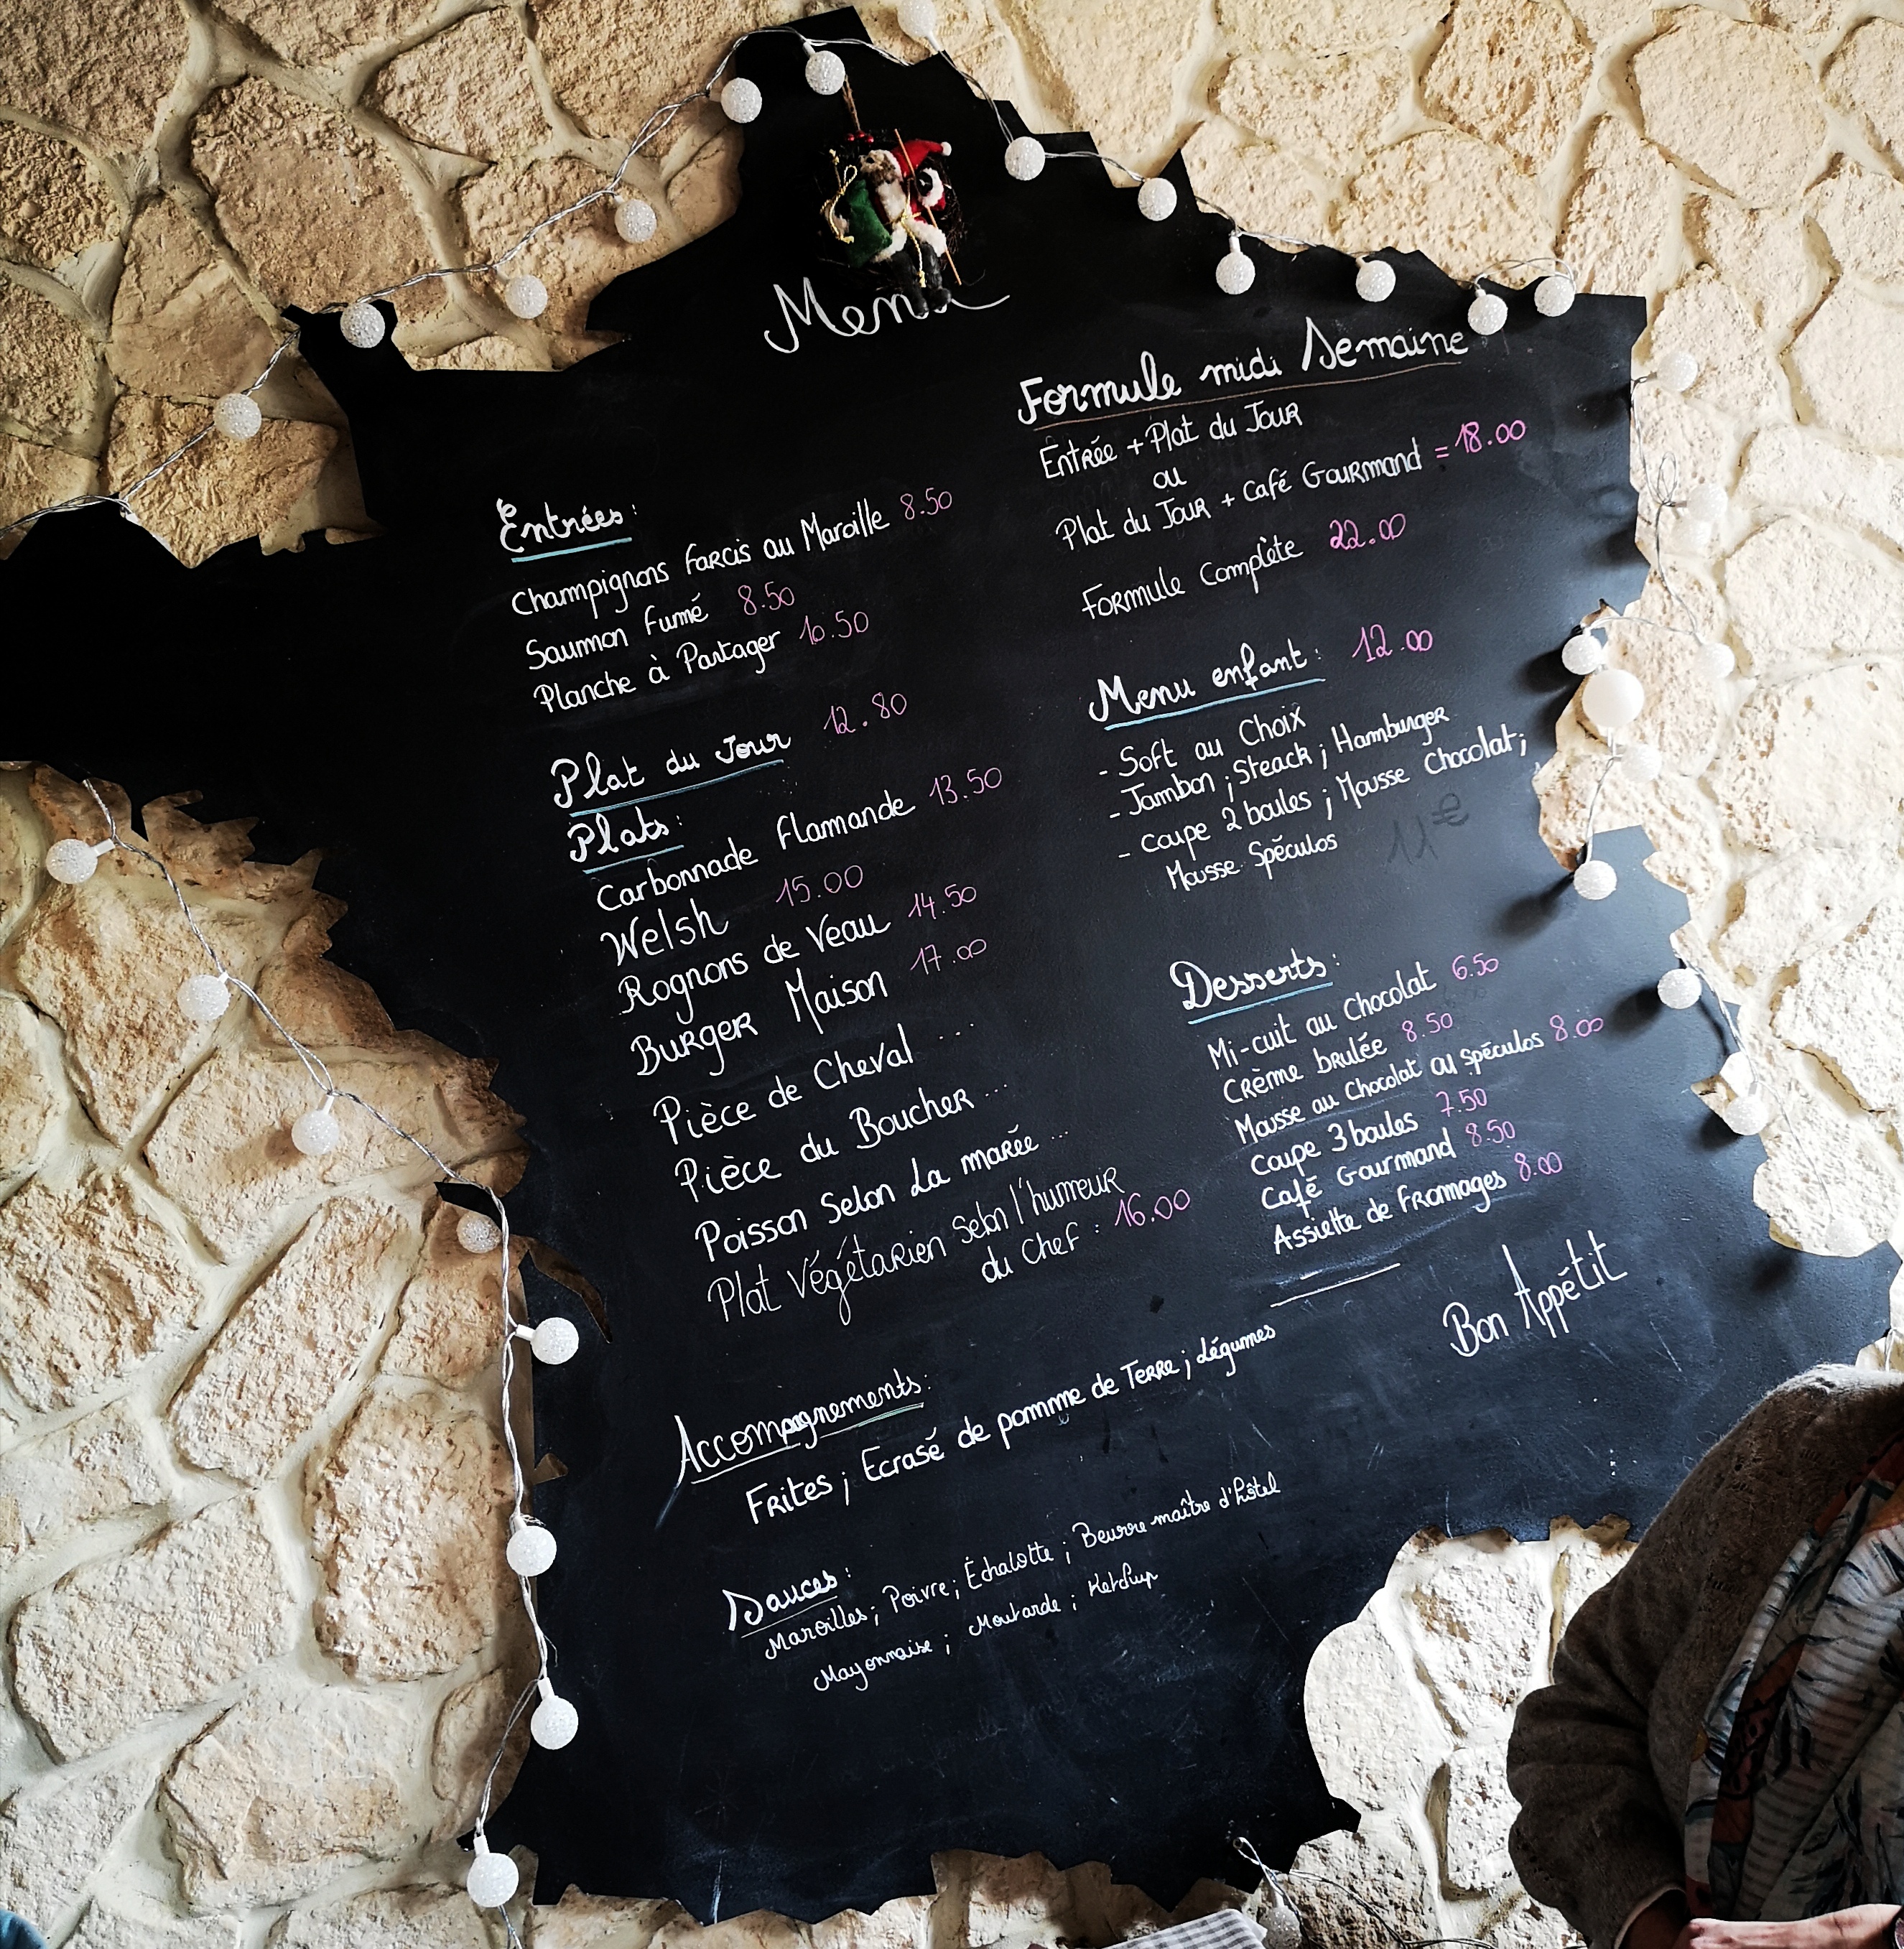 Menu
Entrées:
Champignons farcis au Maroille 8.50
Saumon fumé 8.50
Planche à Partager 10.50
Plat du Jour 12.80
Plats:
Carbonnade flamande 13.50
Welsh 15.00
Rognons de Veau 14.50
Burger Maison 17.00
Pièce de Cheval ...
Pièce du Boucher ...
Poisson Selon La marée ...
Plat Végétarien Selon l'humeur
du Chef : 16.00
Accompagnements:
Frites ; Ecrasé de pomme de Terre ; Légumes
Sauces:
Maroilles ; Poivre ; Échalotte ; Beurre maître d'hôtel
Mayonnaise ; Moutarde ; Ketchup
Formule midi Semaine
Entrée + Plat du Jour
ou
Plat du Jour + Café Gourmand = 18.00
Formule Complète 22.00
Menu enfant : 12.00
- Soft au Choix
- Jambon ; Steack ; Hamburger
- Coupe 2 boules ; Mousse Chocolat ;
Mousse Spéculos
11€
Desserts:
Mi-cuit au Chocolat 6.50
Crème brulée 8.50
Mousse au Chocolat ou Spéculos 8.00
Coupe 3 boules 7.50
Café Gourmand 8.50
Assiette de Fromages 8.00
Bon Appétit